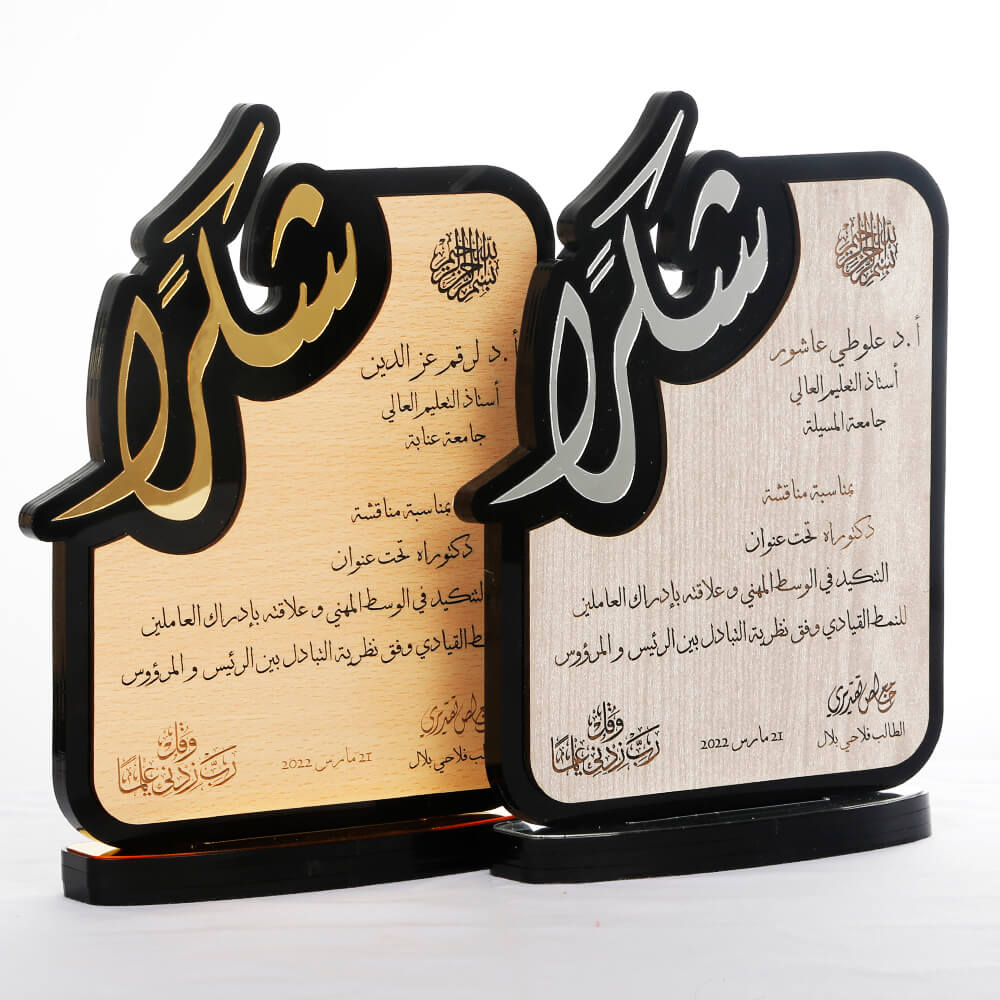 شكراً
بسم الله الرحمن الرحيم
أ.د لرقم عز الدين
أستاذ التعليم العالي
جامعة عنابة
بمناسبة مناقشة
دكتوراه تحت عنوان
التنكيد في الوسط المهني و علاقته بإدراك العاملين
للنمط القيادي وفق نظرية التبادل بين الرئيس و المرؤوس
مع خالص تقديري
الطالب فلاحي بلال
21 مارس 2022
وقل
رب زدني علما
شكراً
بسم الله الرحمن الرحيم
أ.د علوطي عاشور
أستاذ التعليم العالي
جامعة المسيلة
بمناسبة مناقشة
دكتوراه تحت عنوان
التنكيد في الوسط المهني و علاقته بإدراك العاملين
للنمط القيادي وفق نظرية التبادل بين الرئيس و المرؤوس
مع خالص تقديري
الطالب فلاحي بلال
21 مارس 2022
وقل
رب زدني علما